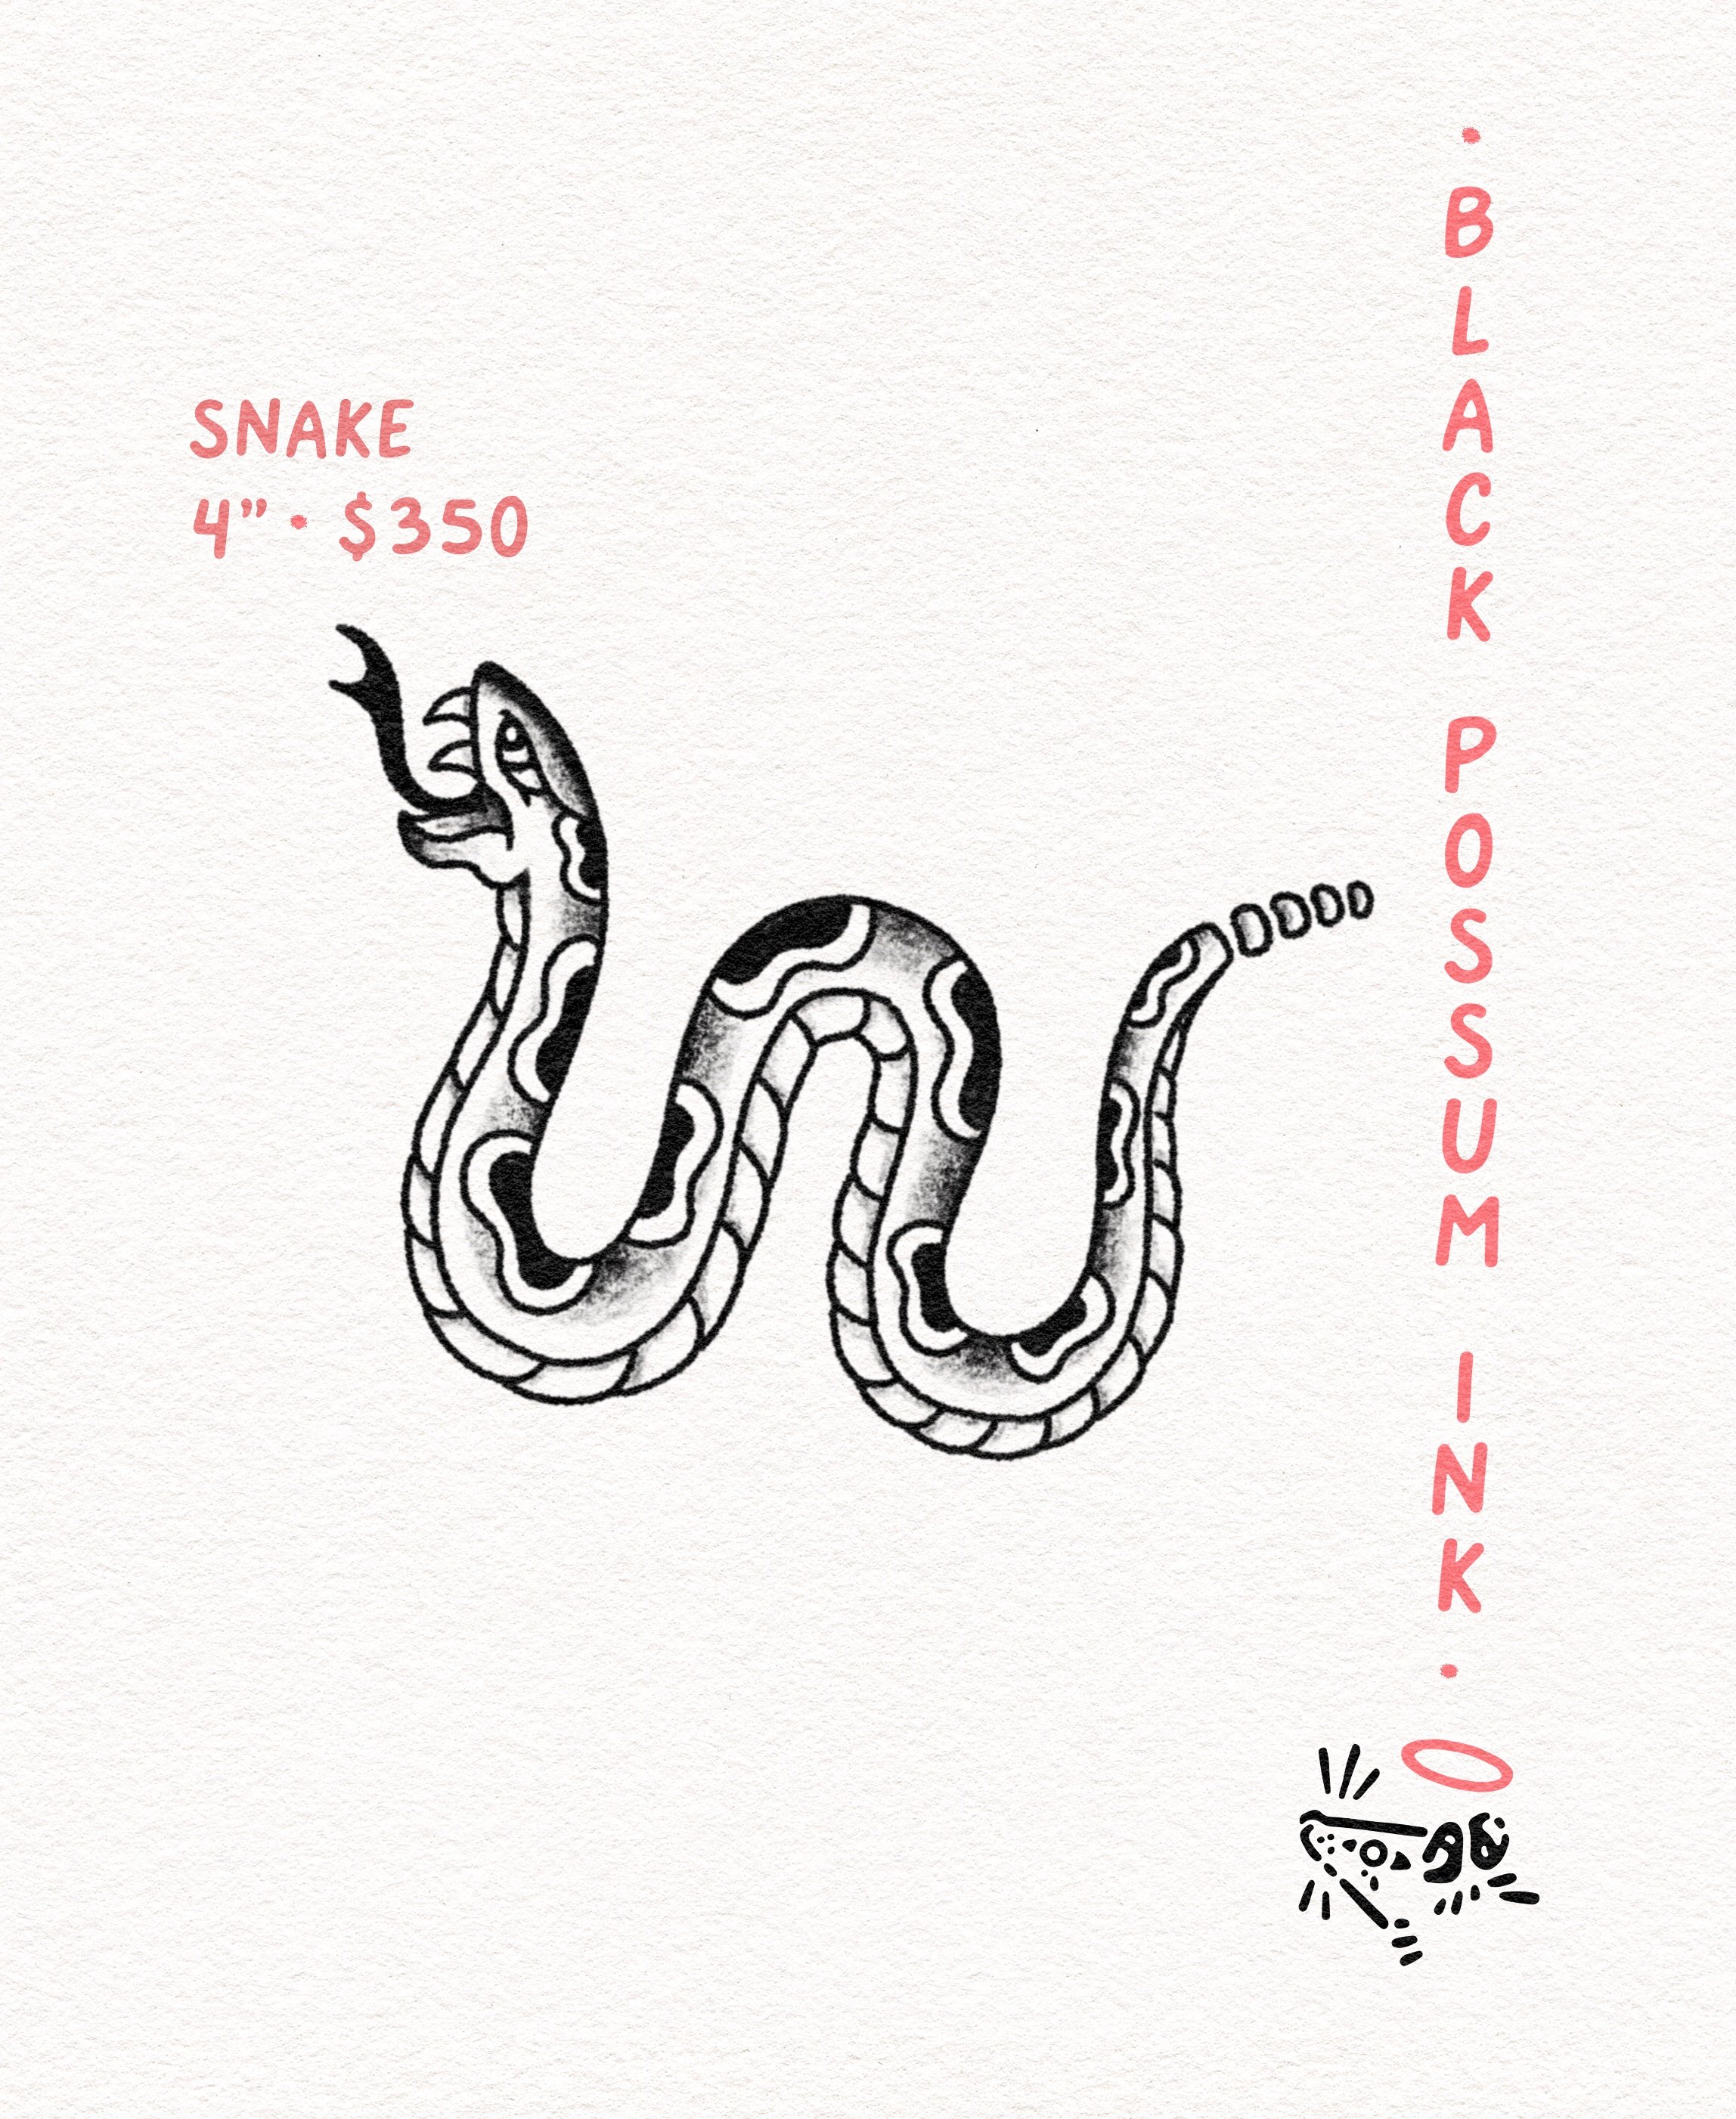 SNAKE
4” • $350
• BLACK POSSUM INK •